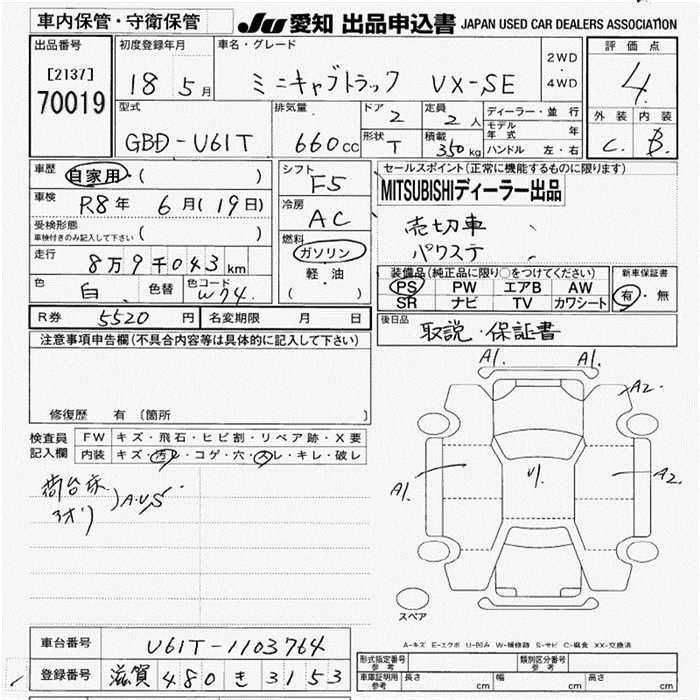 車内保管・守衛保管 JU 愛知 出品申込書 JAPAN USED CAR DEALERS ASSOCIATION
出品番号 [2137] 70019
初度登録年月 18 5月
車名・グレード ミニキャブトラック VX-SE
2WD・4WD
評価点 4.
外装 C. 内装 B.
型式 GBD-U61T
排気量 660cc
ドア 2 定員 2人
形状 T 積載 350kg
ディーラー・並行
モデル年式 年
ハンドル 左・右
車歴 自家用・( )
車検 R8年 6月(19日)
受検形態 車検付きのみ記入して下さい ( )
走行 8万9千043km
色 白 色替 色コード W74.
シフト F5
冷房 AC
燃料 ガソリン・軽油 ( )
セールスポイント(正常に機能するものに限ります)
MITSUBISHIディーラー出品
売切車
パワステ
装備品(純正品に限り○をつけてください)
PS PW エアB AW
SR ナビ TV カワシート
新車保証書 有・無
R券 5520円 名変期限 月 日
後日品 取説・保証書
注意事項申告欄(不具合内容等は具体的に記入して下さい)
修復歴 有 〔箇所 〕
検査員記入欄 FW キズ・飛石・ヒビ割・リペア跡・X要
内装 キズ・汚レ・コゲ・穴・スレ・キレ・破レ
荷台床
アオリ )A.U.S
A1. A1.
A2.
A1. U1. A2.
スペア
A-キズ E-エクボ U-凹み W-補修跡 S-サビ C-腐食 XX-交換済
車台番号 U61T-1103764
登録番号 滋賀 480 き 3153
形式指定番号 参考 類別区分番号 参考
車庫証明用 参考 長さ cm 幅 cm 高さ cm